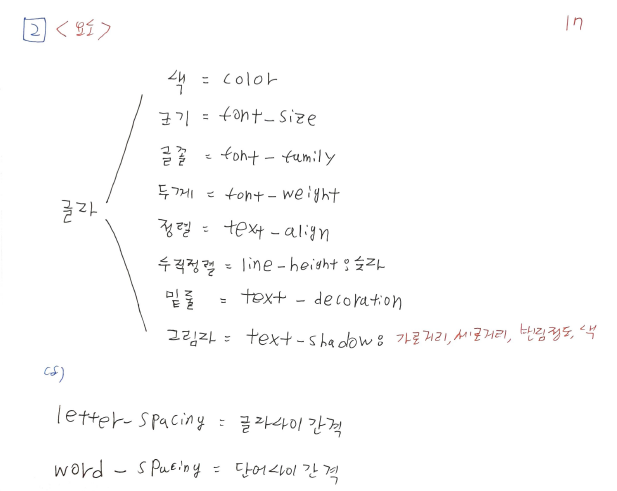 2 <요소>
17
색 = color
크기 = font-size
글꼴 = font-family
두께 = font-weight
글자
정렬 = text-align
수직정렬 = line-height : 숫자
밑줄 = text-decoration
그림자 = text-shadow : 가로거리, 세로거리, 번짐정도, 색
cf)
letter-spacing = 글자사이 간격
word-spacing = 단어사이 간격